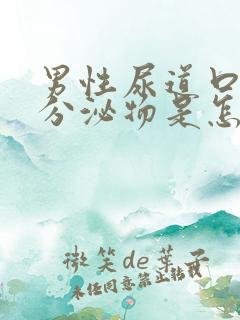 男性尿道口
分泌物是怎
微笑de叶子
未经同意禁止转载